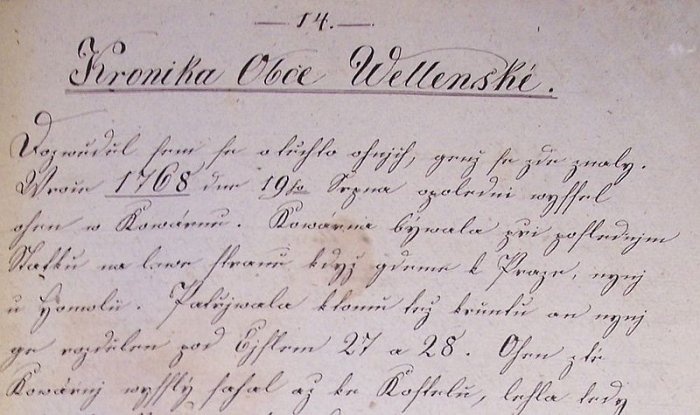 14.
Kronika Obce Wellenské.
Dozwěděl sem se o těchto ohnjch, genž se zde znaly.
W roce 1768 dne 19ho Srpna o poledni wyssel
ohen w Kowárně. Kowárna býwala při poslednjm
Statku na lewe straně když gdeme k Praze, nynj
u Homolů. Patřjwala k tomu též k gruntu an nynj
ge rozdělen pod Čjslem 27 a 28. Ohen z té
Kowárnj wysslý sahal až ke Kostelu, lehla tedy